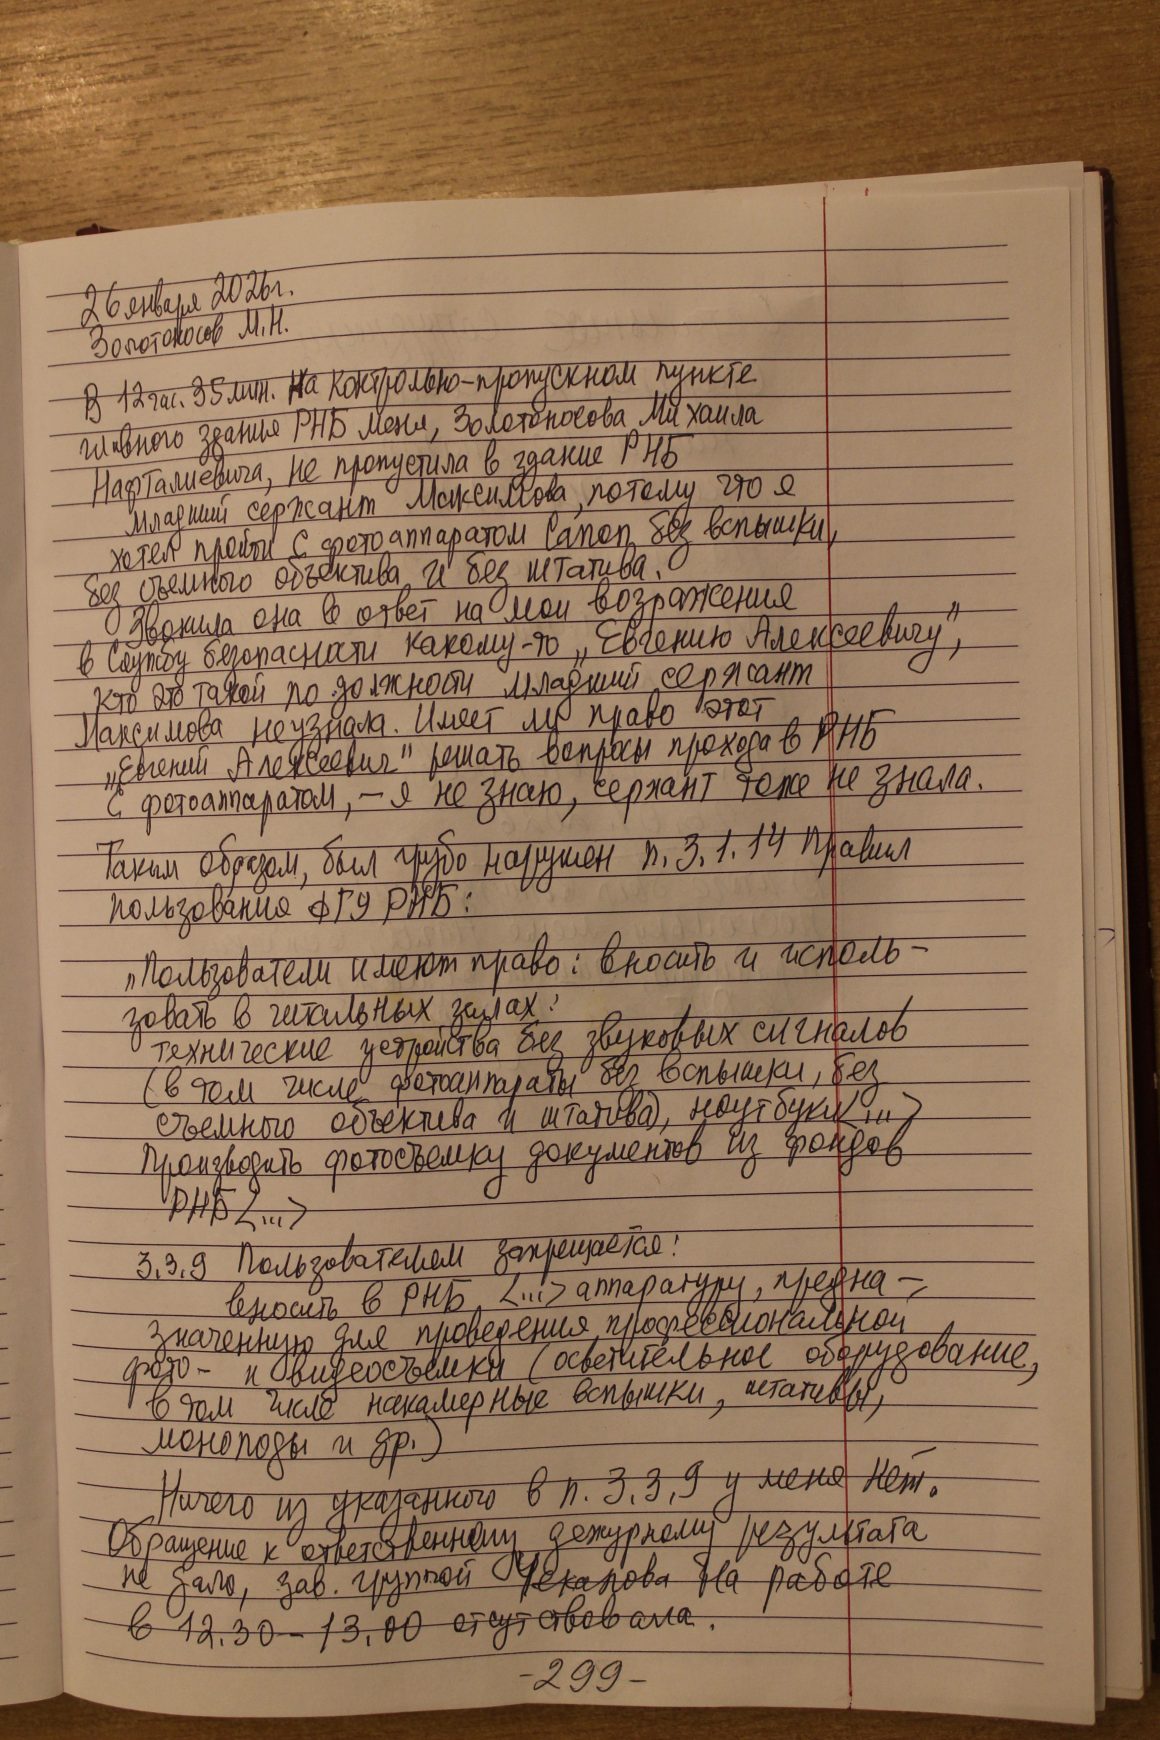 26 января 2026г.
Золотоносов М.Н.
В 12 час. 35 мин. на контрольно-пропускном пункте
главного здания РНБ меня, Золотоносова Михаила
Нафталиевича, не пропустила в здание РНБ
младший сержант Максимова, потому что я
хотел пройти с фотоаппаратом Canon без вспышки,
без съемного объектива и без штатива.
Звонила она в ответ на мои возражения
в Службу безопасности какому-то „Евгению Алексеевичу",
кто это такой по должности младший сержант
Максимова не узнала. Имеет ли право этот
„Евгений Алексеевич" решать вопросы прохода в РНБ
с фотоаппаратом, – я не знаю, сержант тоже не знала.
Таким образом, был грубо нарушен п. 3.1.14 Правил
пользования ФГУ РНБ:
„Пользователи имеют право: вносить и исполь-
зовать в читальных залах:
технические устройства без звуковых сигналов
(в том числе фотоаппараты без вспышки, без
съемного объектива и штатива), ноутбуки <...>
Производить фотосъемку документов из фондов
РНБ <...>
3.3.9 Пользователем запрещается:
вносить в РНБ <...> аппаратуру, предна-
значенную для проведения профессиональной
фото- и видеосъемки (осветительное оборудование,
в том числе накамерные вспышки, штативы,
моноподы и др.)
Ничего из указанного в п. 3.3.9 у меня нет.
Обращение к ответственному дежурному результата
не дало, зав. группой Чеканова на работе
в 12.30 – 13.00 отсутствовала.
-299-